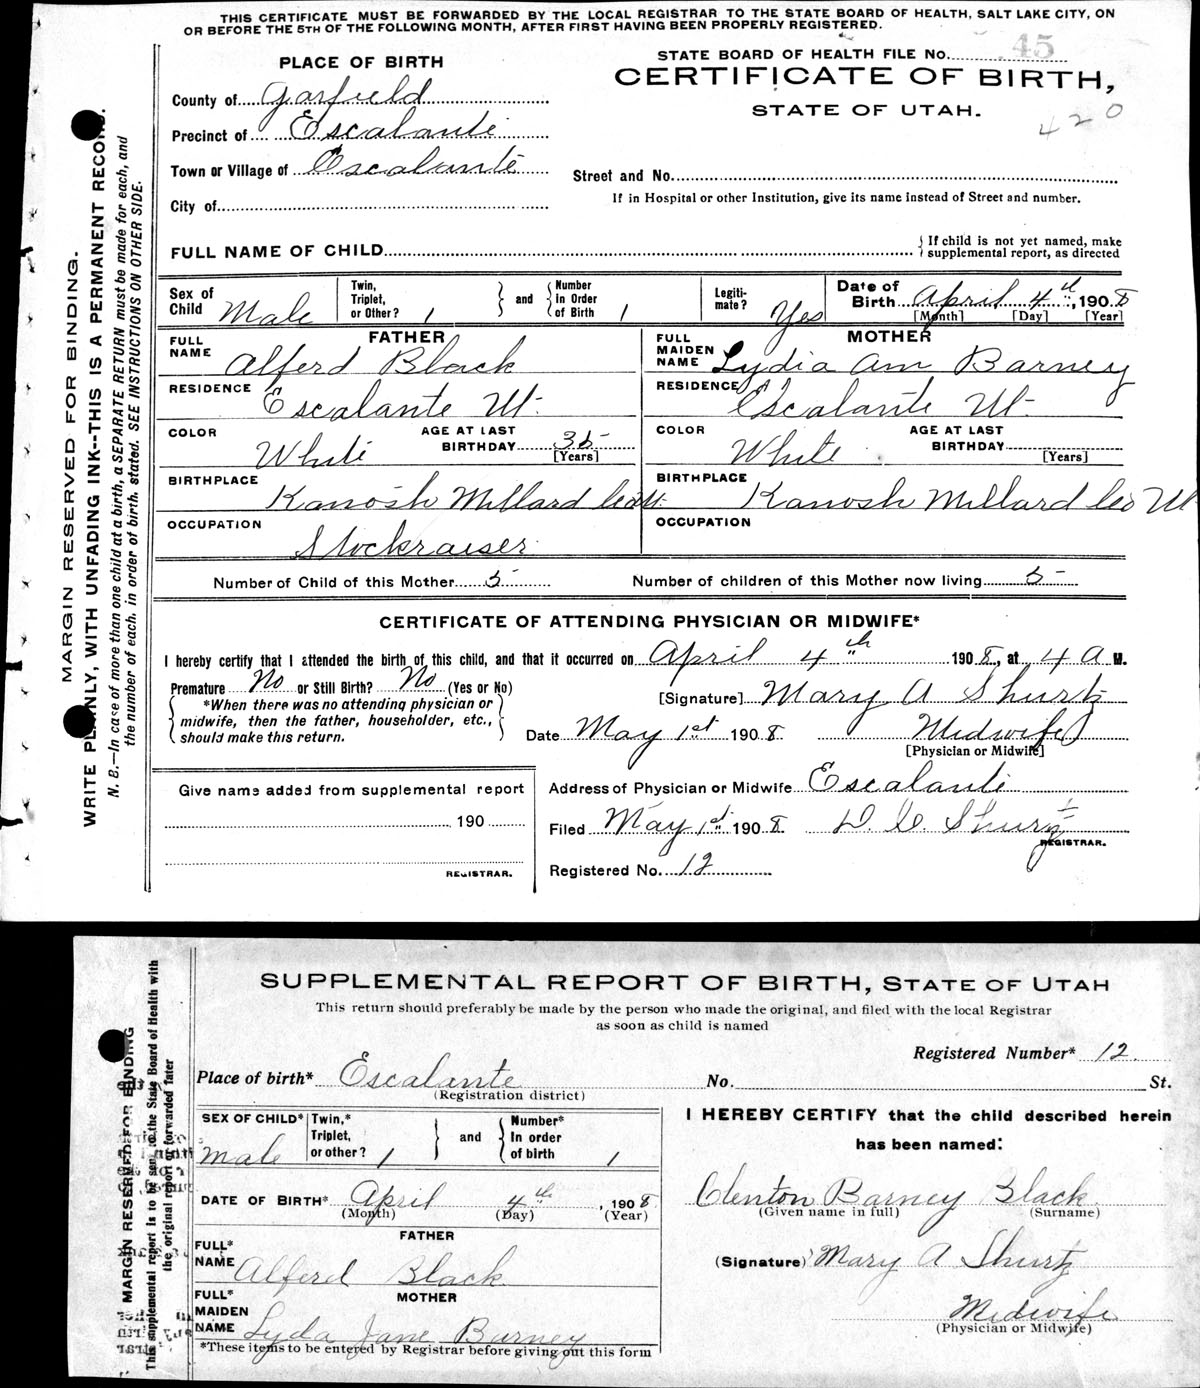 THIS CERTIFICATE MUST BE FORWARDED BY THE LOCAL REGISTRAR TO THE STATE BOARD OF HEALTH, SALT LAKE CITY, ON
OR BEFORE THE 5TH OF THE FOLLOWING MONTH, AFTER FIRST HAVING BEEN PROPERLY REGISTERED.
MARGIN RESERVED FOR BINDING.
WRITE PLAINLY, WITH UNFADING INK--THIS IS A PERMANENT RECORD.
N. B.—In case of more than one child at a birth, a SEPARATE RETURN must be made for each, and
the number of each, in order of birth, stated. SEE INSTRUCTIONS ON OTHER SIDE.
PLACE OF BIRTH
STATE BOARD OF HEALTH FILE No. 45
CERTIFICATE OF BIRTH,
STATE OF UTAH.
420
County of Garfield
Precinct of Escalante
Town or Village of Escalante
Street and No.
City of
If in Hospital or other Institution, give its name instead of Street and number.
FULL NAME OF CHILD
If child is not yet named, make
supplemental report, as directed
Sex of Child Male
Twin, Triplet, or Other? 1
and
Number In Order of Birth 1
Legitimate? Yes
Date of Birth April 4th, 1908
[Month] [Day] [Year]
FATHER
FULL NAME Alferd Black
MOTHER
FULL MAIDEN NAME Lydia Ann Barney
RESIDENCE Escalante Ut.
RESIDENCE Escalante Ut.
COLOR White
AGE AT LAST BIRTHDAY 35
[Years]
COLOR White
AGE AT LAST BIRTHDAY
[Years]
BIRTHPLACE Kanosh Millard Co Ut.
BIRTHPLACE Kanosh Millard Co Ut
OCCUPATION Stockraiser
OCCUPATION
Number of Child of this Mother 5
Number of children of this Mother now living 5
CERTIFICATE OF ATTENDING PHYSICIAN OR MIDWIFE*
I hereby certify that I attended the birth of this child, and that it occurred on April 4th 1908, at 4 A M.
Premature No or Still Birth? No (Yes or No)
*When there was no attending physician or
midwife, then the father, householder, etc.,
should make this return.
[Signature] Mary A Shurtz
Date May 1st 1908 Midwife
[Physician or Midwife]
Give name added from supplemental report
190
REGISTRAR.
Address of Physician or Midwife Escalante
Filed May 1st 1908 D. C. Shurtz
REGISTRAR.
Registered No. 12
MARGIN RESERVED FOR BINDING
This supplemental report is to be sent to the State Board of Health with
the original report or forwarded later
SUPPLEMENTAL REPORT OF BIRTH, STATE OF UTAH
This return should preferably be made by the person who made the original, and filed with the local Registrar
as soon as child is named
Registered Number* 12
Place of birth* Escalante
No. St.
(Registration district)
SEX OF CHILD* Male
Twin,* Triplet, or other? 1
and
Number* In order of birth 1
I HEREBY CERTIFY that the child described herein
has been named:
DATE OF BIRTH* April 4th, 1908
(Month) (Day) (Year)
Clenton Barney Black
(Given name in full) (Surname)
FATHER
FULL* NAME Alferd Black
(Signature) Mary A Shurtz
MOTHER
FULL* MAIDEN NAME Lyda Jane Barney
Midwife
(Physician or Midwife)
*These items to be entered by Registrar before giving out this form